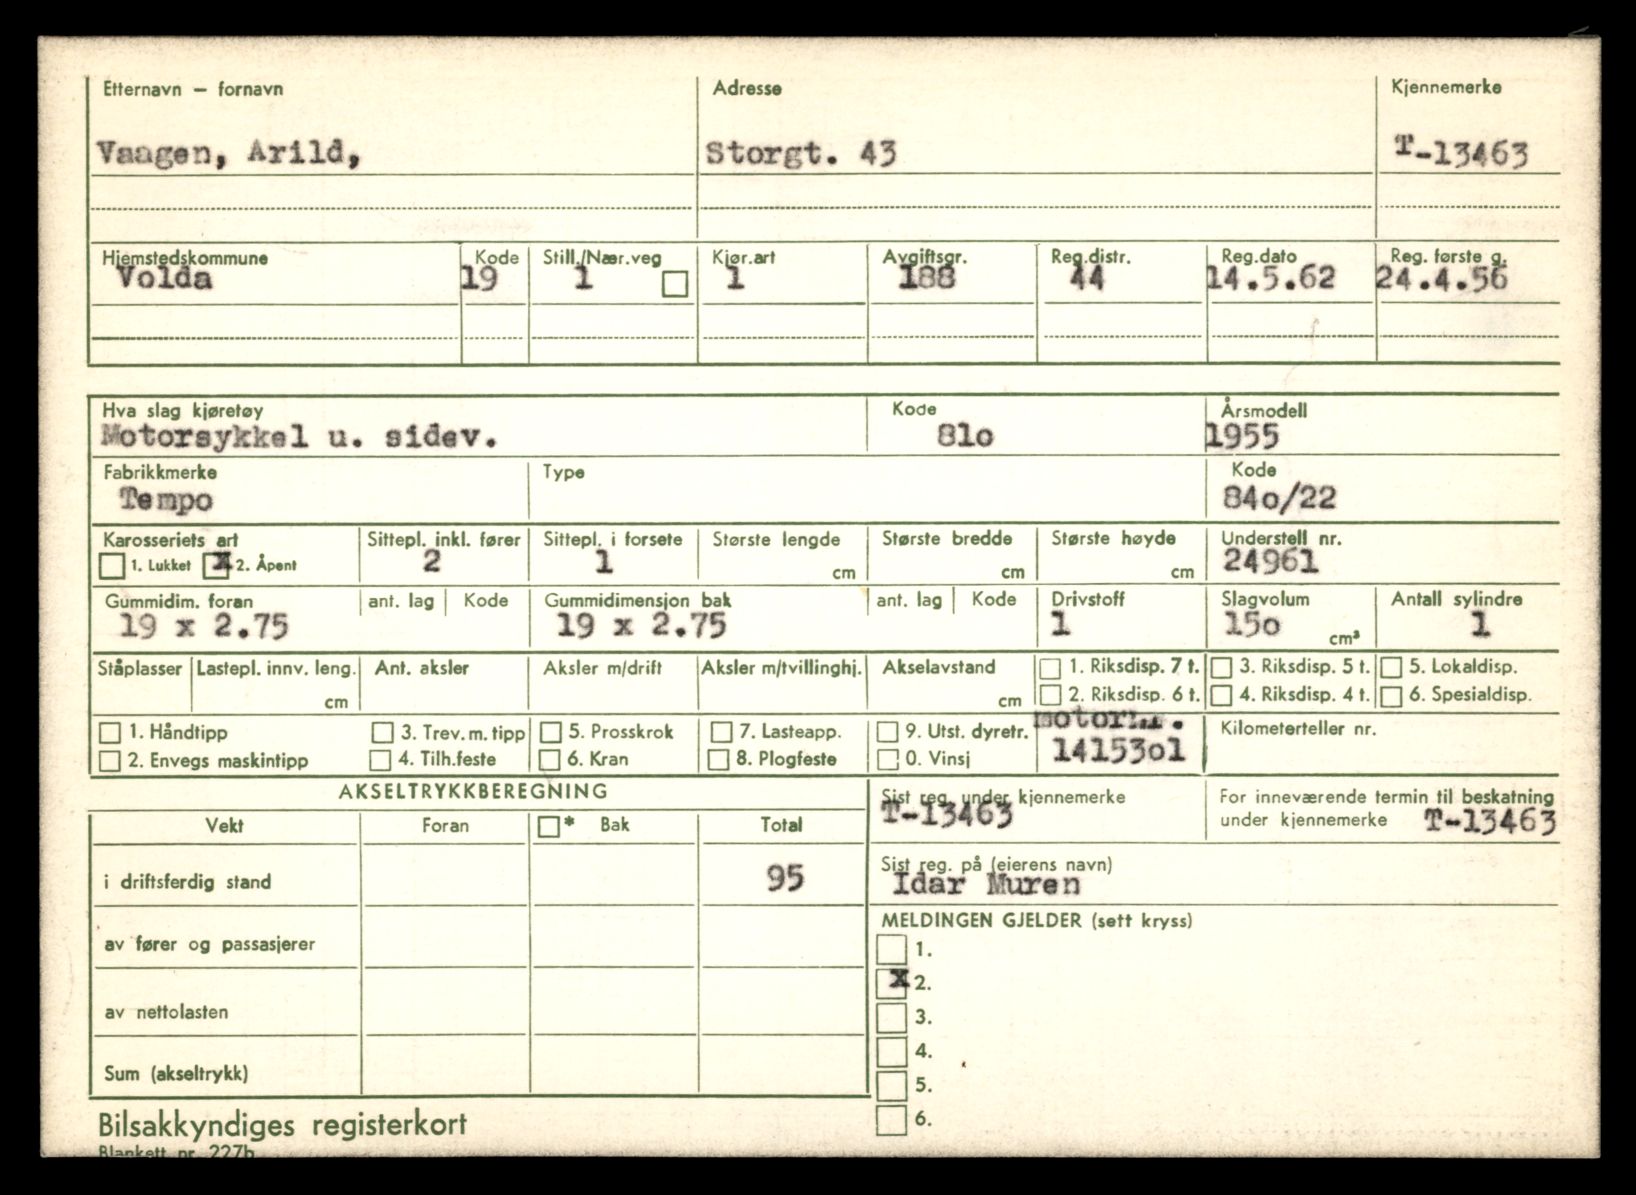 Etternavn – fornavn Adresse Kjennemerke
Vaagen, Arild, Storgt. 43 T-13463
Hjemstedskommune Kode Still./Nær.veg Kjør.art Avgiftsgr. Reg.distr. Reg.dato Reg. første g.
Volda 19 1 1 188 44 14.5.62 24.4.56
Hva slag kjøretøy Kode Årsmodell
Motorsykkel u. sidev. 81o 1955
Fabrikkmerke Type Kode
Tempo 84o/22
Karosseriets art Sittepl. inkl. fører Sittepl. i forsete Største lengde Største bredde Største høyde Understell nr.
1. Lukket x 2. Åpent 2 1 cm cm cm 24961
Gummidim. foran ant. lag Kode Gummidimensjon bak ant. lag Kode Drivstoff Slagvolum Antall sylindre
19 x 2.75 19 x 2.75 1 15o cm³ 1
Ståplasser Lastepl. innv. leng. Ant. aksler Aksler m/drift Aksler m/tvillinghj. Akselavstand 1. Riksdisp. 7 t. 3. Riksdisp. 5 t. 5. Lokaldisp.
cm cm 2. Riksdisp. 6 t. 4. Riksdisp. 4 t. 6. Spesialdisp.
1. Håndtipp 3. Trev. m. tipp 5. Prosskrok 7. Lasteapp. 9. Utst. dyretr. Kilometerteller nr.
2. Envegs maskintipp 4. Tilh.feste 6. Kran 8. Plogfeste 0. Vinsj 14153o1
AKSELTRYKKBEREGNING Sist reg. under kjennemerke For inneværende termin til beskatning
T-13463 under kjennemerke T-13463
Vekt Foran * Bak Total
Sist reg. på (eierens navn)
i driftsferdig stand 95 Idar Muren
MELDINGEN GJELDER (sett kryss)
av fører og passasjerer 1.
x 2.
av nettolasten 3.
4.
Sum (akseltrykk) 5.
6.
Bilsakkyndiges registerkort
Blankett nr. 227b